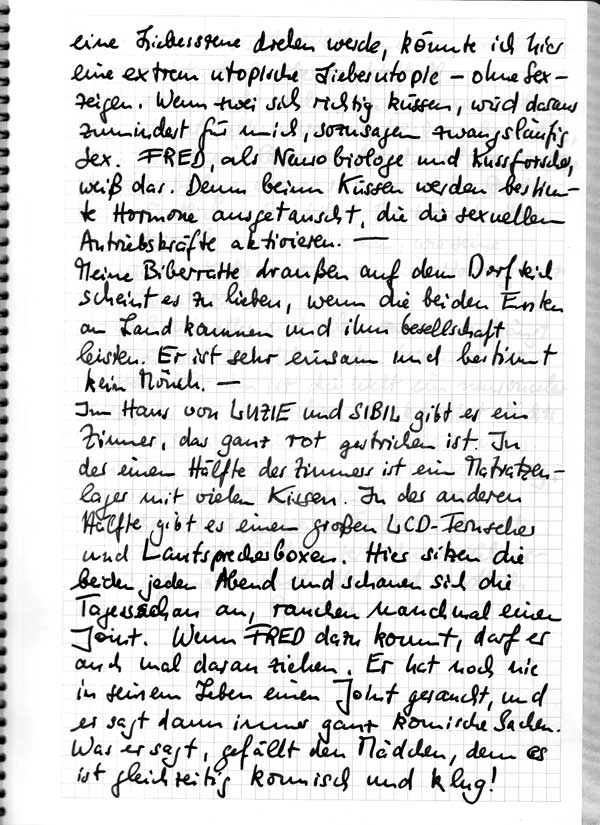 eine Liebesszene drehen werde, könnte ich hier
eine extrem utopische Liebesutopie – ohne Sex –
zeigen. Wenn zwei sich richtig küssen, wird daraus
zumindest für mich, sozusagen zwangsläufig
Sex. FRED, als Neurobiologe und Kussforscher,
weiß das. Denn beim Küssen werden bestimm-
te Hormone ausgetauscht, die die sexuellen
Antriebskräfte aktivieren. —
Meine Biberratte draußen auf dem Dorfteich
scheint es zu lieben, wenn die beiden Enten
an Land kommen und ihm Gesellschaft
leisten. Er ist sehr einsam und bestimmt
kein Mönch. —
Im Haus von LUZIE und SIBIL gibt es ein
Zimmer, das ganz rot gestrichen ist. In
der einen Hälfte des Zimmers ist ein Matratzen-
lager mit vielen Kissen. In der anderen
Hälfte gibt es einen großen LCD-Fernseher
und Lautsprecherboxen. Hier sitzen die
beiden jeden Abend und schauen sich die
Tagesschau an, rauchen manchmal einen
Joint. Wenn FRED dazu kommt, darf er
auch mal daran ziehen. Er hat noch nie
in seinem Leben einen Joint geraucht, und
er sagt dann immer ganz komische Sachen.
Was er sagt, gefällt den Mädchen, denn es
ist gleichzeitig komisch und klug!